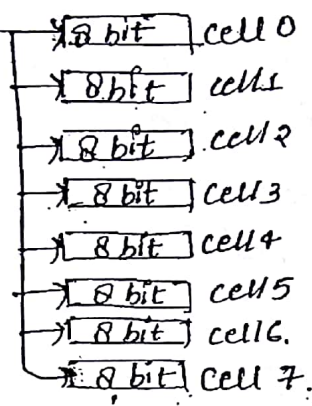 8 bit cell 0
8 bit cell 1
8 bit cell 2
8 bit cell 3
8 bit cell 4
8 bit cell 5
8 bit cell 6.
8 bit cell 7.